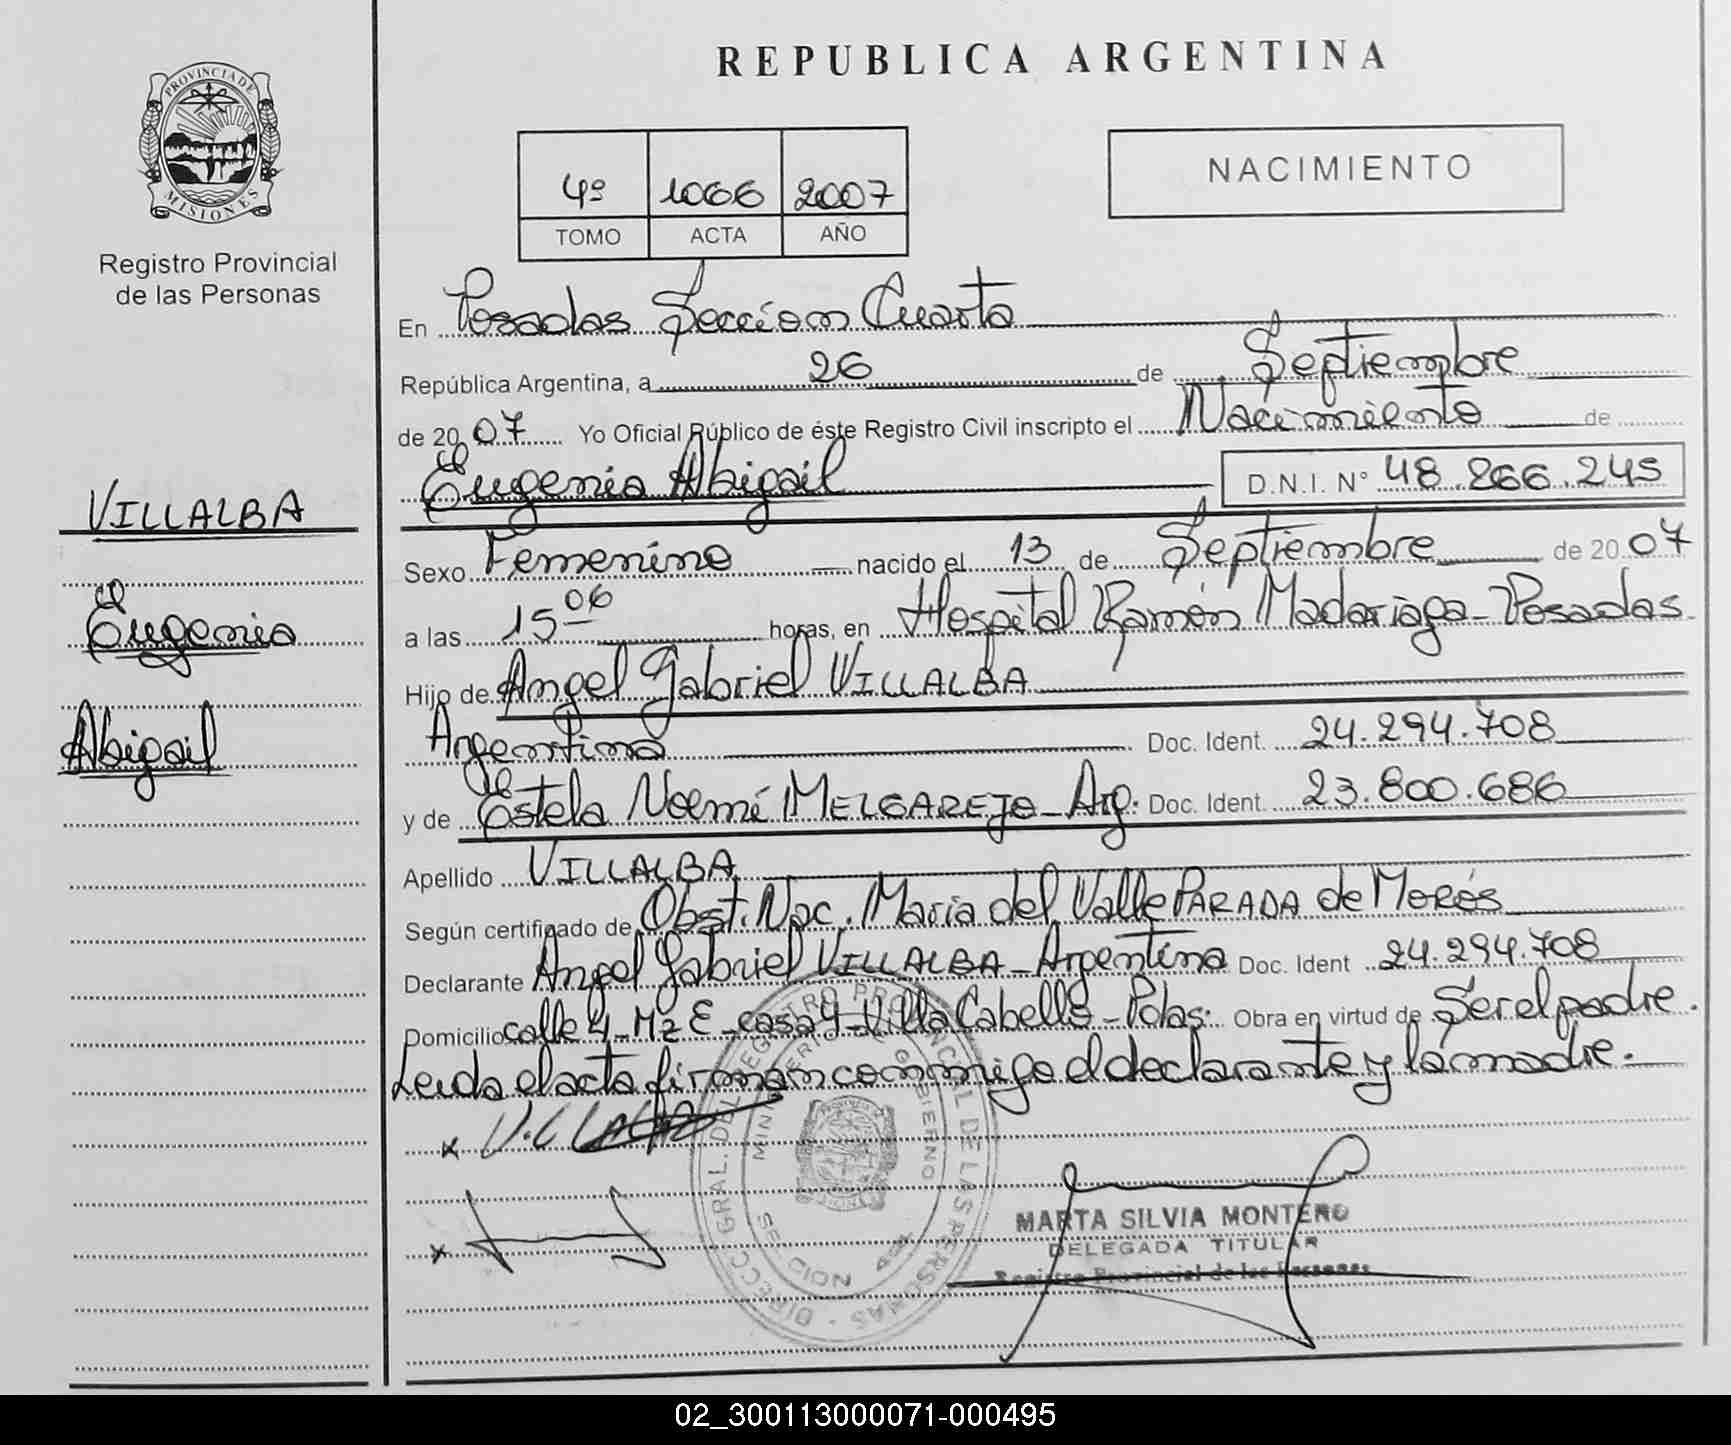 REPUBLICA ARGENTINA
PROVINCIA DE
MISIONES
Registro Provincial
de las Personas
4º 1066 2007
TOMO ACTA AÑO
NACIMIENTO
En Posadas Sección Cuarta
República Argentina, a 26 de Septiembre
de 2007 Yo Oficial Público de éste Registro Civil inscripto el Nacimiento de
Eugenia Abigail D.N.I. Nº 48.866.245
VILLALBA
Eugenia
Abigail
Sexo Femenino nacido el 13 de Septiembre de 2007
a las 15 06 horas, en Hospital Ramón Madariaga - Posadas
Hijo de Angel Gabriel VILLALBA
Argentina Doc. Ident. 24.294.708
y de Estela Noemí MELGAREJO - Arg. Doc. Ident. 23.800.686
Apellido VILLALBA
Según certificado de Obst. Nac. Maria del Valle PARADA de MORÉS
Declarante Angel Gabriel VILLALBA - Argentina Doc. Ident 24.294.708
Domicilio calle 4 - Mz E - casa 9 - Villa Cabello - Pdas. Obra en virtud de Ser el padre.
Leída el acta firman conmigo el declarante y la madre.
DIRECC. GRAL. DEL REGISTRO PROVINCIAL DE LAS PERSONAS
MINISTERIO DE GOBIERNO
SECCION 4ta
x
x
MARTA SILVIA MONTERO
DELEGADA TITULAR
Registro Provincial de las Personas
02_300113000071-000495